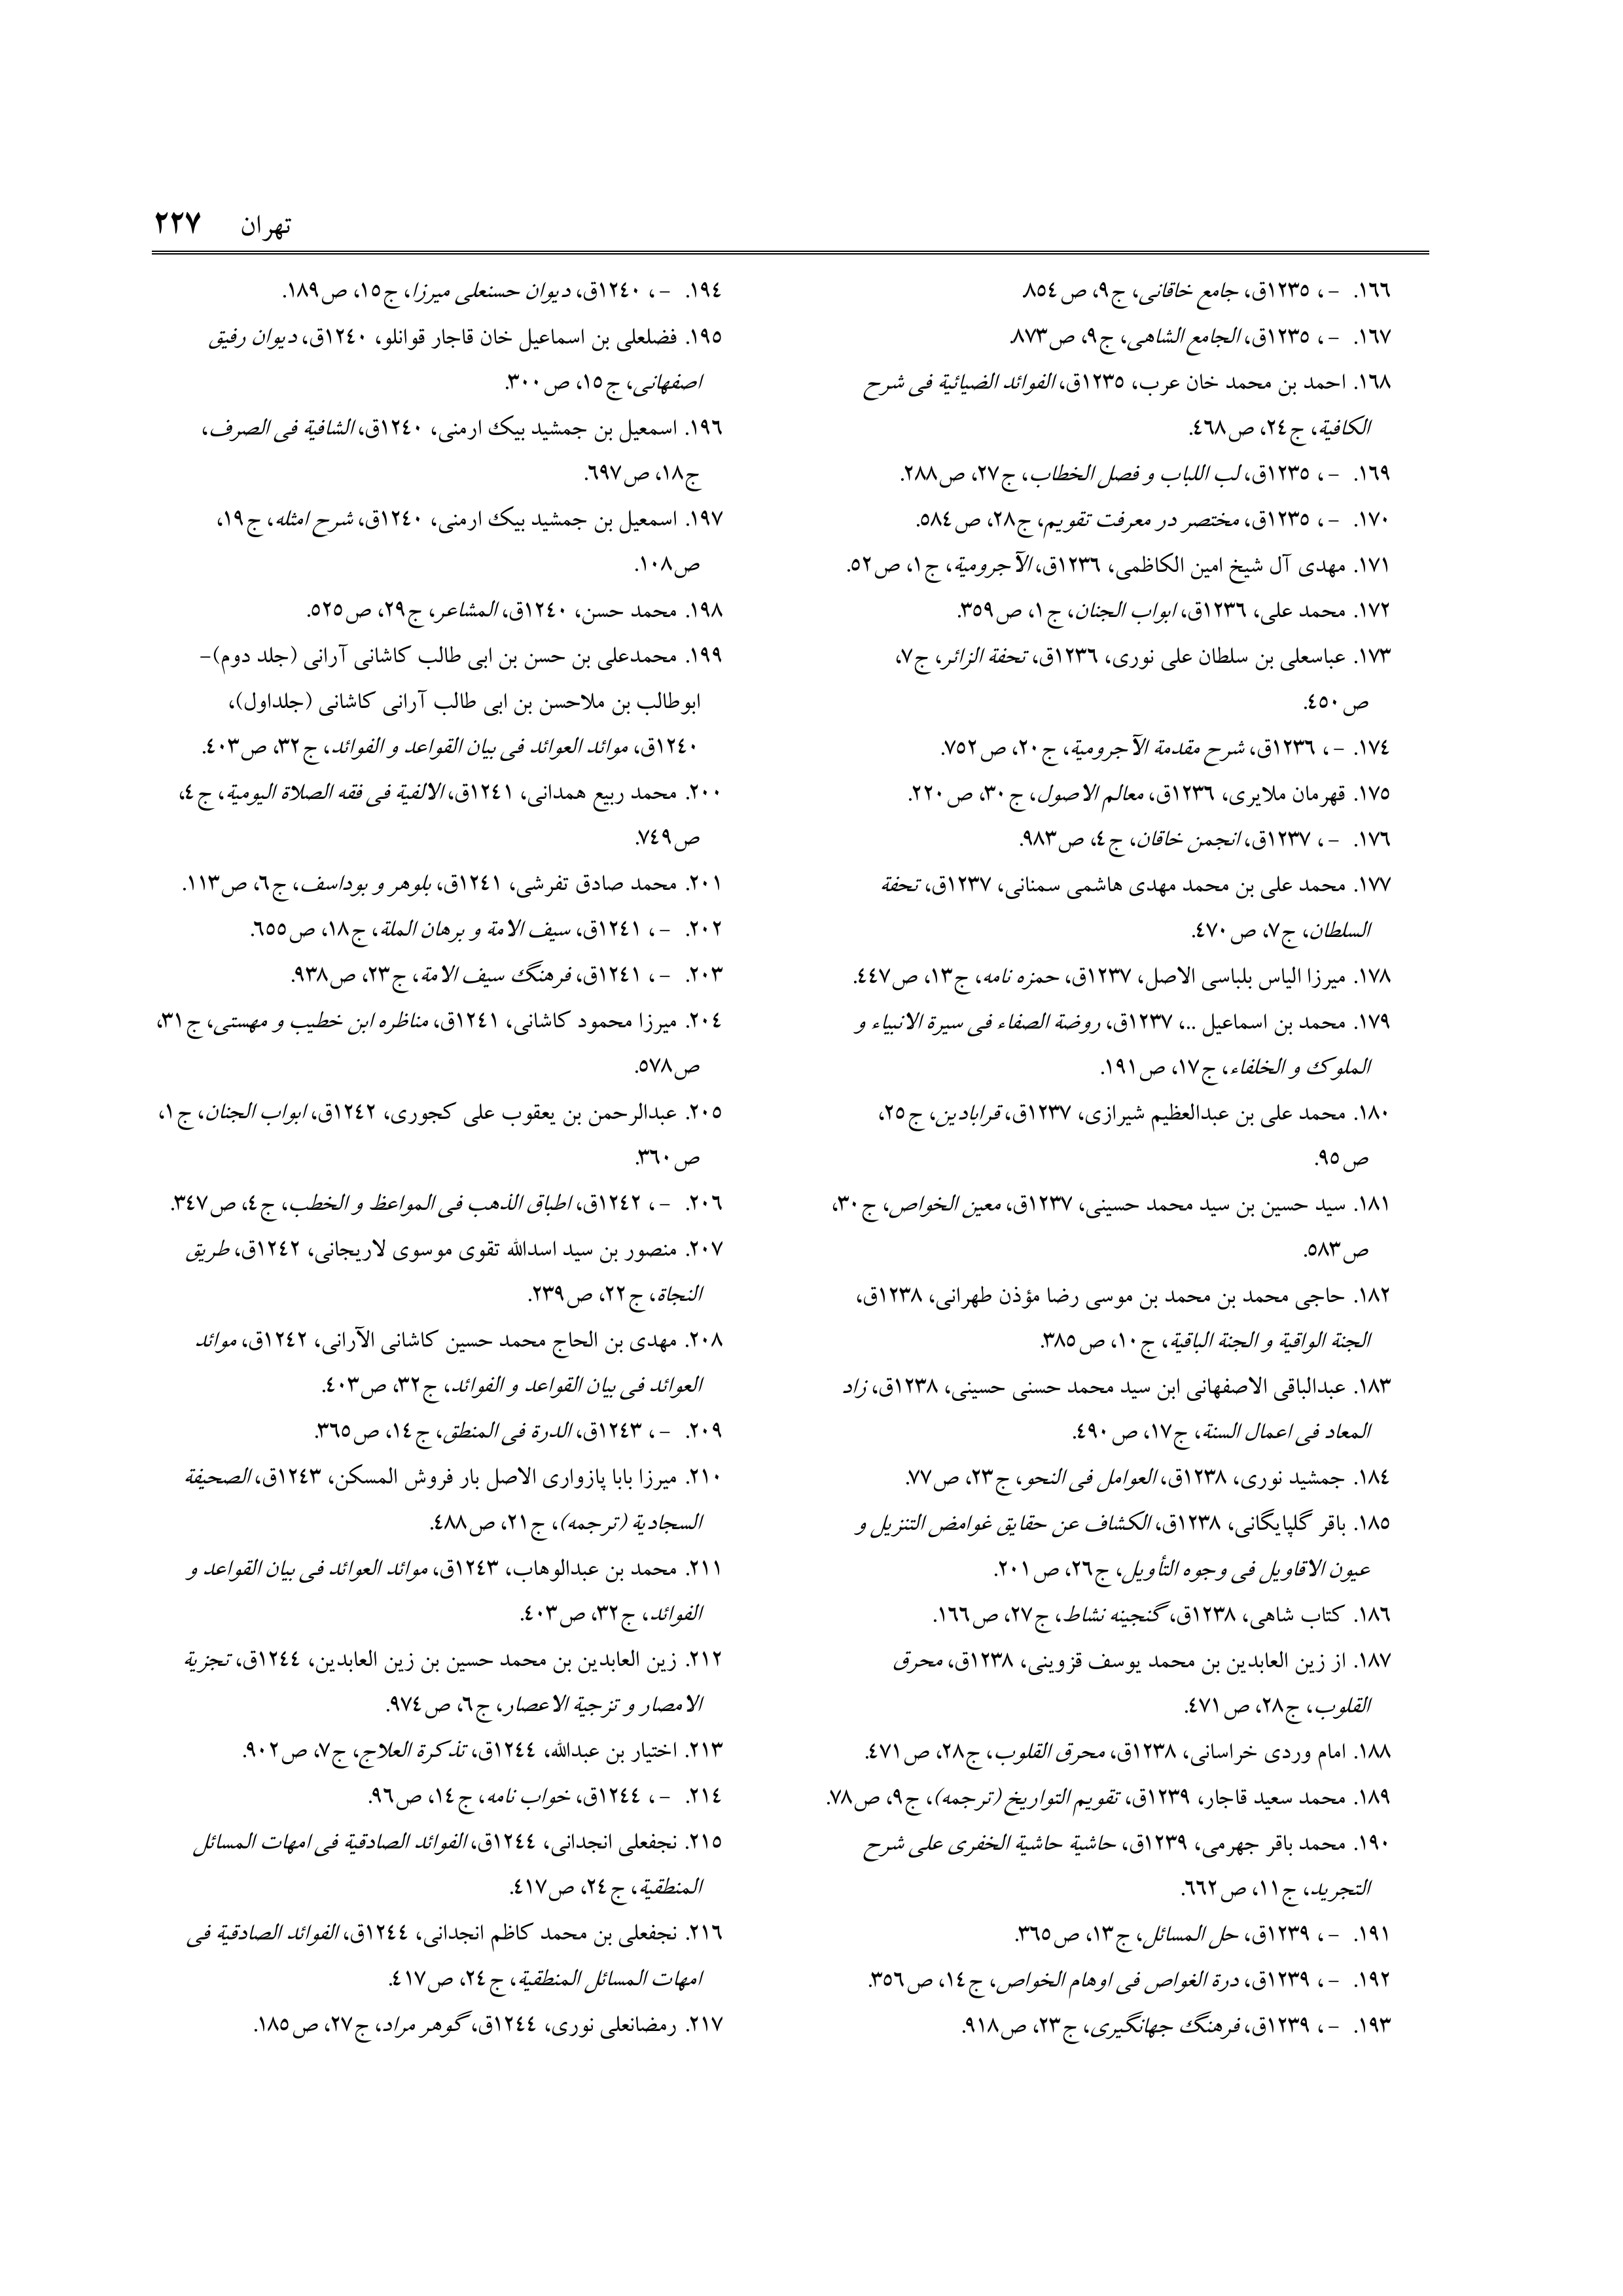 تهران ۲۲۷
۱۶۶. -، ۱۲۳۵ق، جامع خاقانی، ج۹، ص۸۵۴.
۱۶۷. -، ۱۲۳۵ق، الجامع الشاهی، ج۹، ص۸۷۳.
۱۶۸. احمد بن محمد خان عرب، ۱۲۳۵ق، الفوائد الضیائیة فی شرح
الکافیة، ج۲۴، ص۴۶۸.
۱۶۹. -، ۱۲۳۵ق، لب اللباب و فصل الخطاب، ج۲۷، ص۲۸۸.
۱۷۰. -، ۱۲۳۵ق، مختصر در معرفت تقویم، ج۲۸، ص۵۸۴.
۱۷۱. مهدی آل شیخ امین الکاظمی، ۱۲۳۶ق، الآجرومیة، ج۱، ص۵۲.
۱۷۲. محمد علی، ۱۲۳۶ق، ابواب الجنان، ج۱، ص۳۵۹.
۱۷۳. عباسعلی بن سلطان علی نوری، ۱۲۳۶ق، تحفة الزائر، ج۷،
ص۴۵۰.
۱۷۴. -، ۱۲۳۶ق، شرح مقدمة الآجرومیة، ج۲۰، ص۷۵۲.
۱۷۵. قهرمان ملایری، ۱۲۳۶ق، معالم الاصول، ج۳۰، ص۲۲۰.
۱۷۶. -، ۱۲۳۷ق، انجمن خاقان، ج۴، ص۹۸۳.
۱۷۷. محمد علی بن محمد مهدی هاشمی سمنانی، ۱۲۳۷ق، تحفة
السلطان، ج۷، ص۴۷۰.
۱۷۸. میرزا الیاس بلباسی الاصل، ۱۲۳۷ق، حمزه نامه، ج۱۳، ص۴۴۷.
۱۷۹. محمد بن اسماعیل ..، ۱۲۳۷ق، روضة الصفاء فی سیرة الانبیاء و
الملوک و الخلفاء، ج۱۷، ص۱۹۱.
۱۸۰. محمد علی بن عبدالعظیم شیرازی، ۱۲۳۷ق، قرابادین، ج۲۵،
ص۹۵.
۱۸۱. سید حسین بن سید محمد حسینی، ۱۲۳۷ق، معین الخواص، ج۳۰،
ص۵۸۳.
۱۸۲. حاجی محمد بن محمد بن موسی رضا مؤذن طهرانی، ۱۲۳۸ق،
الجنة الواقیة و الجنة الباقیة، ج۱۰، ص۳۸۵.
۱۸۳. عبدالباقی الاصفهانی ابن سید محمد حسنی حسینی، ۱۲۳۸ق، زاد
المعاد فی اعمال السنة، ج۱۷، ص۴۹۰.
۱۸۴. جمشید نوری، ۱۲۳۸ق، العوامل فی النحو، ج۲۳، ص۷۷.
۱۸۵. باقر گلپایگانی، ۱۲۳۸ق، الکشاف عن حقایق غوامض التنزیل و
عیون الاقاویل فی وجوه التأویل، ج۲۶، ص۲۰۱.
۱۸۶. کتاب شاهی، ۱۲۳۸ق، گنجینه نشاط، ج۲۷، ص۱۶۶.
۱۸۷. از زین العابدین بن محمد یوسف قزوینی، ۱۲۳۸ق، محرق
القلوب، ج۲۸، ص۴۷۱.
۱۸۸. امام وردی خراسانی، ۱۲۳۸ق، محرق القلوب، ج۲۸، ص۴۷۱.
۱۸۹. محمد سعید قاجار، ۱۲۳۹ق، تقویم التواریخ (ترجمه)، ج۹، ص۷۸.
۱۹۰. محمد باقر جهرمی، ۱۲۳۹ق، حاشیة حاشیة الخفری علی شرح
التجرید، ج۱۱، ص۶۶۲.
۱۹۱. -، ۱۲۳۹ق، حل المسائل، ج۱۳، ص۳۶۵.
۱۹۲. -، ۱۲۳۹ق، درة الغواص فی اوهام الخواص، ج۱۴، ص۳۵۶.
۱۹۳. -، ۱۲۳۹ق، فرهنگ جهانگیری، ج۲۳، ص۹۱۸.
۱۹۴. -، ۱۲۴۰ق، دیوان حسنعلی میرزا، ج۱۵، ص۱۸۹.
۱۹۵. فضلعلی بن اسماعیل خان قاجار قوانلو، ۱۲۴۰ق، دیوان رفیق
اصفهانی، ج۱۵، ص۳۰۰.
۱۹۶. اسمعیل بن جمشید بیک ارمنی، ۱۲۴۰ق، الشافیة فی الصرف،
ج۱۸، ص۶۹۷.
۱۹۷. اسمعیل بن جمشید بیک ارمنی، ۱۲۴۰ق، شرح امثله، ج۱۹،
ص۱۰۸.
۱۹۸. محمد حسن، ۱۲۴۰ق، المشاعر، ج۲۹، ص۵۲۵.
۱۹۹. محمدعلی بن حسن بن ابی طالب کاشانی آرانی (جلد دوم)-
ابوطالب بن ملاحسن بن ابی طالب آرانی کاشانی (جلداول)،
۱۲۴۰ق، موائد العوائد فی بیان القواعد و الفوائد، ج۳۲، ص۴۰۳.
۲۰۰. محمد ربیع همدانی، ۱۲۴۱ق، الالفیة فی فقه الصلاة الیومیة، ج۴،
ص۷۴۹.
۲۰۱. محمد صادق تفرشی، ۱۲۴۱ق، بلوهر و بوداسف، ج۶، ص۱۱۳.
۲۰۲. -، ۱۲۴۱ق، سیف الامة و برهان الملة، ج۱۸، ص۶۵۵.
۲۰۳. -، ۱۲۴۱ق، فرهنگ سیف الامة، ج۲۳، ص۹۳۸.
۲۰۴. میرزا محمود کاشانی، ۱۲۴۱ق، مناظره ابن خطیب و مهستی، ج۳۱،
ص۵۷۸.
۲۰۵. عبدالرحمن بن یعقوب علی کجوری، ۱۲۴۲ق، ابواب الجنان، ج۱،
ص۳۶۰.
۲۰۶. -، ۱۲۴۲ق، اطباق الذهب فی المواعظ و الخطب، ج۴، ص۳۴۷.
۲۰۷. منصور بن سید اسدالله تقوی موسوی لاریجانی، ۱۲۴۲ق، طریق
النجاة، ج۲۲، ص۲۳۹.
۲۰۸. مهدی بن الحاج محمد حسین کاشانی الآرانی، ۱۲۴۲ق، موائد
العوائد فی بیان القواعد و الفوائد، ج۳۲، ص۴۰۳.
۲۰۹. -، ۱۲۴۳ق، الدرة فی المنطق، ج۱۴، ص۳۶۵.
۲۱۰. میرزا بابا پازواری الاصل بار فروش المسکن، ۱۲۴۳ق، الصحیفة
السجادیة (ترجمه)، ج۲۱، ص۴۸۸.
۲۱۱. محمد بن عبدالوهاب، ۱۲۴۳ق، موائد العوائد فی بیان القواعد و
الفوائد، ج۳۲، ص۴۰۳.
۲۱۲. زین العابدین بن محمد حسین بن زین العابدین، ۱۲۴۴ق، تجزیة
الامصار و تزجیة الاعصار، ج۶، ص۹۷۴.
۲۱۳. اختیار بن عبدالله، ۱۲۴۴ق، تذکرة العلاج، ج۷، ص۹۰۲.
۲۱۴. -، ۱۲۴۴ق، خواب نامه، ج۱۴، ص۹۶.
۲۱۵. نجفعلی انجدانی، ۱۲۴۴ق، الفوائد الصادقیة فی امهات المسائل
المنطقیة، ج۲۴، ص۴۱۷.
۲۱۶. نجفعلی بن محمد کاظم انجدانی، ۱۲۴۴ق، الفوائد الصادقیة فی
امهات المسائل المنطقیة، ج۲۴، ص۴۱۷.
۲۱۷. رمضانعلی نوری، ۱۲۴۴ق، گوهر مراد، ج۲۷، ص۱۸۵.